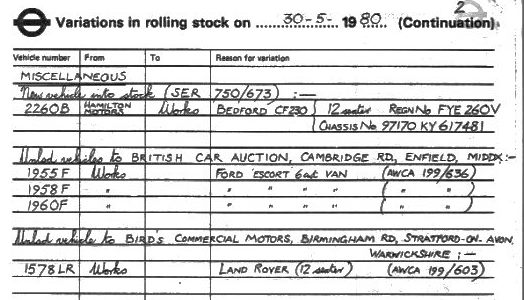 2
Variations in rolling stock on 30-5- 1980. (Continuation)
Vehicle number From To Reason for variation
MISCELLANEOUS
New vehicle into stock (SER 750/673) :—
2260B HAMILTON MOTORS Works BEDFORD CF230 12 seater REGN No FYE 260V
CHASSIS No 97170 KY 617481
Unlsd vehicles to BRITISH CAR AUCTION, CAMBRIDGE RD, ENFIELD, MIDDX:-
1955F Works FORD ESCORT 6cwt VAN (AWCA 199/636)
1958F " " " " " ( " " )
1960F " " " " " ( " " )
Unlsd vehicle to BIRD'S COMMERCIAL MOTORS, BIRMINGHAM RD, STRATFORD-ON-AVON,
WARWICKSHIRE :—
1578LR Works LAND ROVER (12 seater) (AWCA 199/603)